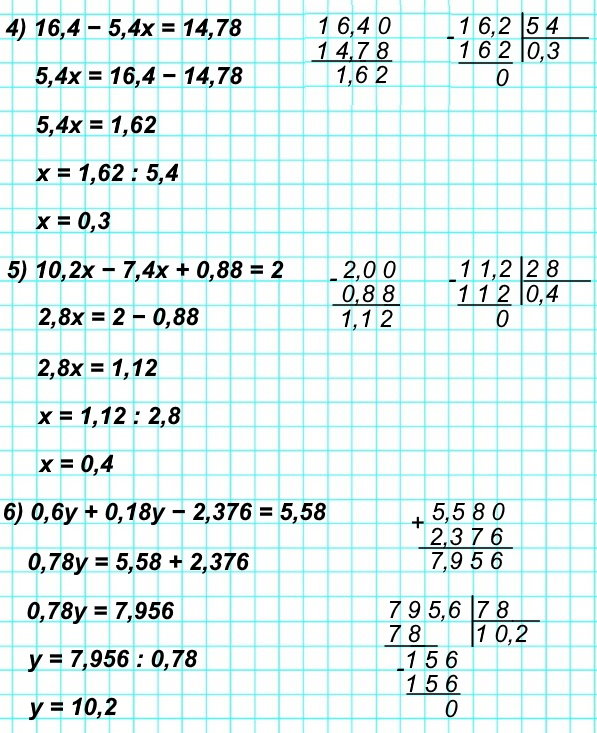 4) 16,4 − 5,4x = 14,78
5,4x = 16,4 − 14,78
5,4x = 1,62
x = 1,62 : 5,4
x = 0,3
16,40
14,78
1,62
-16,2|54
162|0,3
0
5) 10,2x − 7,4x + 0,88 = 2
2,8x = 2 − 0,88
2,8x = 1,12
x = 1,12 : 2,8
x = 0,4
-2,00
0,88
1,12
-11,2|28
112|0,4
0
6) 0,6y + 0,18y − 2,376 = 5,58
0,78y = 5,58 + 2,376
0,78y = 7,956
y = 7,956 : 0,78
y = 10,2
+5,580
2,376
7,956
795,6|78
78|10,2
-156
156
0